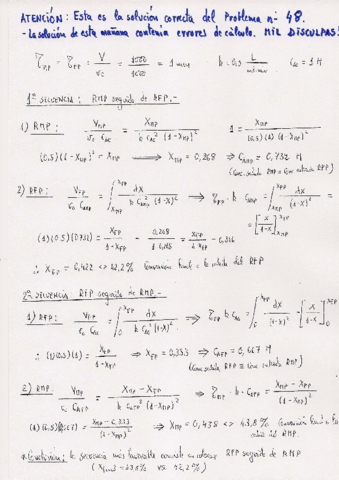 ATENCIÓN: Esta es la solución correcta del Problema nº 48.
- La solución de esta mañana contenía errores de cálculo. MIL DISCULPAS!
τ_MP = τ_FP = V/v₀ = 1500/1500 = 1 min. b = 0,5 L/mol·min C_A0 = 1 M
1ª SECUENCIA: RMP seguido de RFP.-
1) RMP: V_MP / v₀ C_A0 = X_MP / k C_A0² (1-X_MP)² 1 = X_MP / (0,5)(1)(1-X_MP)²
(0,5)(1-X_MP)² = X_MP ⟹ X_MP = 0,268 ⟹ C_AMP = 0,732 M
(Conc. salida RMP = Conc. entrada RFP)
2) RFP: V_FP / v₀ C_A0 = ∫ dX / k C_A0² (1-X)² ⟹ τ_FP · k · C_A0 = ∫ dX / (1-X)² =
= [X / 1-X]
(1)(0.5)(0.732) = X_FP / 1-X_FP - 0,268 / 1-0,268 = X_FP / 1-X_FP - 0,366
∴ X_FP = 0,422 <> 42,2% Conversión final a la salida del RFP
2ª SECUENCIA: RFP seguido de RMP.-
1) RFP: V_FP / v₀ C_A0 = ∫ dX / k C_A0² (1-X)² ⟹ τ_FP k C_A0 = ∫ dX / (1-X)² = [X / 1-X]
∴ (1)(0,5)(1) = X_FP / 1-X_FP ⟹ X_FP = 0,333 ⟹ C_AFP = 0,667 M
(Conc. salida RFP = Conc. entrada RMP)
2) RMP: V_MP / v₀ C_AFP = X_MP - X_FP / k C_AFP² (1-X_MP)² ⟹ τ_MP · k · C_AFP = X_MP - X_FP / (1-X_MP)²
(1)(0.5)(0,667) = X_MP - 0,333 / (1-X_MP)² ⟹ X_MP = 0,438 <> 43.8% Conversión final a la
salida del RMP.
Conclusión: la secuencia más favorable consiste en colocar RFP seguido de RMP
(X_final = 43,8% vs. 42,2%)